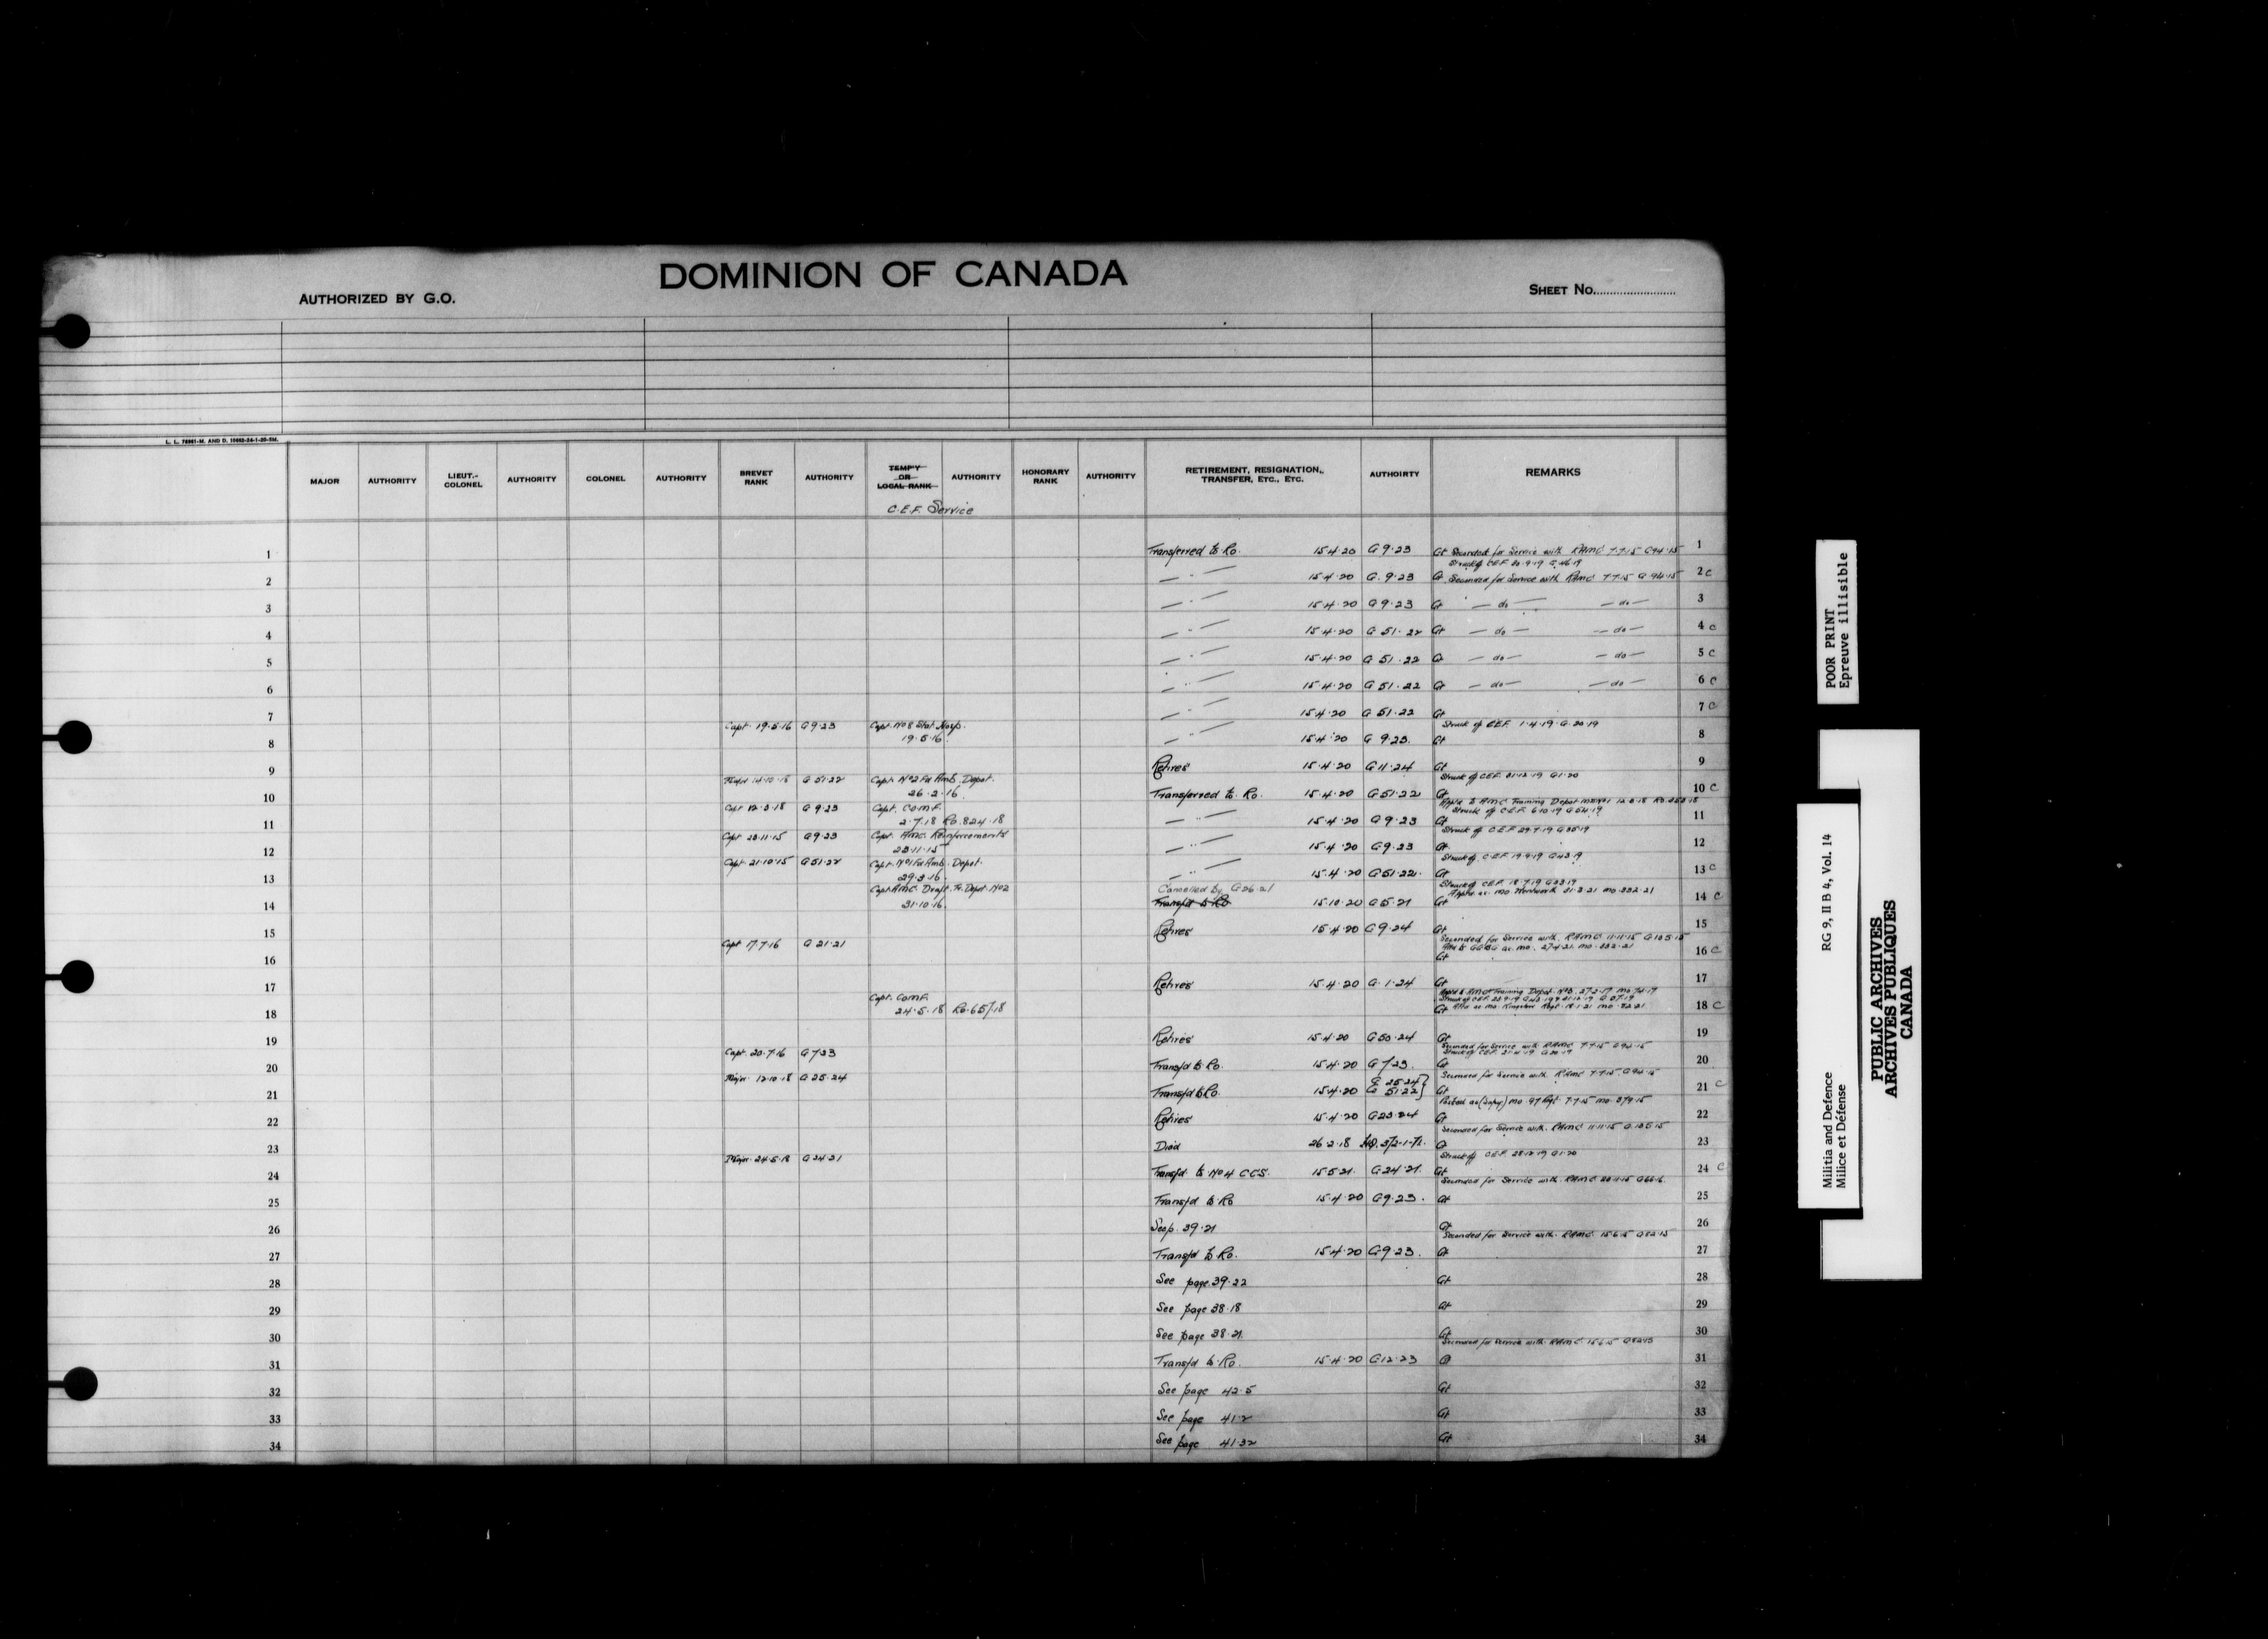 DOMINION OF CANADA
AUTHORIZED BY G.O.
SHEET No.
MAJOR AUTHORITY LIEUT.-COLONEL AUTHORITY COLONEL AUTHORITY BREVET RANK AUTHORITY TEMP'Y OR LOCAL RANK AUTHORITY HONORARY RANK AUTHORITY RETIREMENT, RESIGNATION, TRANSFER, ETC., ETC. AUTHOIRTY REMARKS
C.E.F. Service
1 Transferred to Ro. 15.4.20 G 9.23 Gt Seconded for Service with RAMC 7.7.15 G94.15 1
Struck off CEF 20.9.19 G.46.19
2 — " — 15.4.20 G. 9.23 Gt Seconded for Service with RAMC 7.7.15 G 94.15 2 c
3 — " — 15.4.20 G 9.23 Gt — do — — do — 3
4 — " — 15.4.20 G 51.22 Gt — do — — do — 4 c
5 — " — 15.4.20 G 51.22 Gt — do — — do — 5 c
6 — " — 15.4.20 G 51.22 Gt — do — — do — 6 c
7 — " — 15.4.20 G 51.22 Gt 7 c
Capt. 19.5.16 G 9.23 Capt. No 8 Stat. Hosp. Struck off CEF. 1.4.19 G.20.19
8 19.5.16. — " — 15.4.20 G 9.23. Gt 8
9 Retires 15.4.20 G 11.24 Gt 9
14.10.18 G 51.22 Capt. No 2 Fd Amb. Depot. Struck off CEF. 31.12.19 G1.20
10 26.2.16. Transferred to Ro. 15.4.20 G 51.22 Gt 10 c
Capt 12.3.18 G 9.23 Capt. COMF. Appd to AMC Training Depot
Struck off C.E.F. 6.10.19 G 54.19
11 2.7.18 Ro. 824.18 — " — 15.4.20 G 9.23 Gt 11
Capt 23.11.15 G 9.23 Capt. AMC. Reinforcements Struck off CEF 29.7.19 G 35.19
12 23.11.15 — " — 15.4.20 G 9.23 Gt 12
Capt. 21.10.15 G 51.22 Capt. No 1 Fd Amb. Depot. Struck off. CEF 19.9.19 G43.19
13 29.3.16. — " — 15.4.20 G 51.22. Gt 13 c
Capt AMC. Draft Tr. Depot. No 2 Cancelled by G 26.21 Struck off CEF. 18.7.19 G33.19
14 31.10.16. Transf'd to Ro 15.10.20 G 5.21 Gt 14 c
15 Retires 15.4.20 G 9.24 Gt 15
Capt 17.7.16 G 21.21 Seconded for Service with. RAMC 11.11.15 G 135.15
16 Gt 16 c
17 Retires 15.4.20 G. 1.24 Gt 17
Capt. COMF.
18 24.5.18 Ro. 651.18 Gt 18 c
19 Retires 15.4.20 G 50.24 Gt 19
Capt. 20.7.16 G 7.23 Seconded for Service with RAMC 7.7.15 G94.15
20 Transf'd to Ro. 15.4.20 G 7.23. Gt 20
Major 12.10.18 G 25.24 Seconded for Service with. RAMC 7.7.15 G94.15
21 Transf'd to Ro. 15.4.20 G 25.24 G 51.22 } Gt 21 c
22 Retires 15.4.20 G 23.24 Gt 22
Seconded for Service with. RAMC 11.11.15 G.135.15
23 Died 26.2.18 23
Major. 24.5.18 G 24.21 Struck off CEF. 28.12.19 G1.20
24 Transf'd to No 4 CCS. 15.5.21. G 24.21. Gt 24 c
Seconded for Service with. RAMC
25 Transf'd to Ro 15.4.20 G 9.23. Gt 25
26 See p. 39.21 Gt 26
Seconded for Service with. RAMC 15.6.15 G82.15
27 Transf'd to Ro. 15.4.20 G 9.23. Gt 27
28 See page 39.22 Gt 28
29 See page 38.18 Gt 29
30 See page 38.21. Gt 30
Seconded for Service with. RAMC 15.6.15 G82.15
31 Transf'd to Ro. 15.4.20 G 12.23 31
32 See page 42.5 Gt 32
33 See page 41.2 Gt 33
34 See page 41.32 Gt 34
POOR PRINT
Epreuve illisible
RG 9, II B 4, Vol. 14
Militia and Defence
Milice et Défense
PUBLIC ARCHIVES
ARCHIVES PUBLIQUES
CANADA